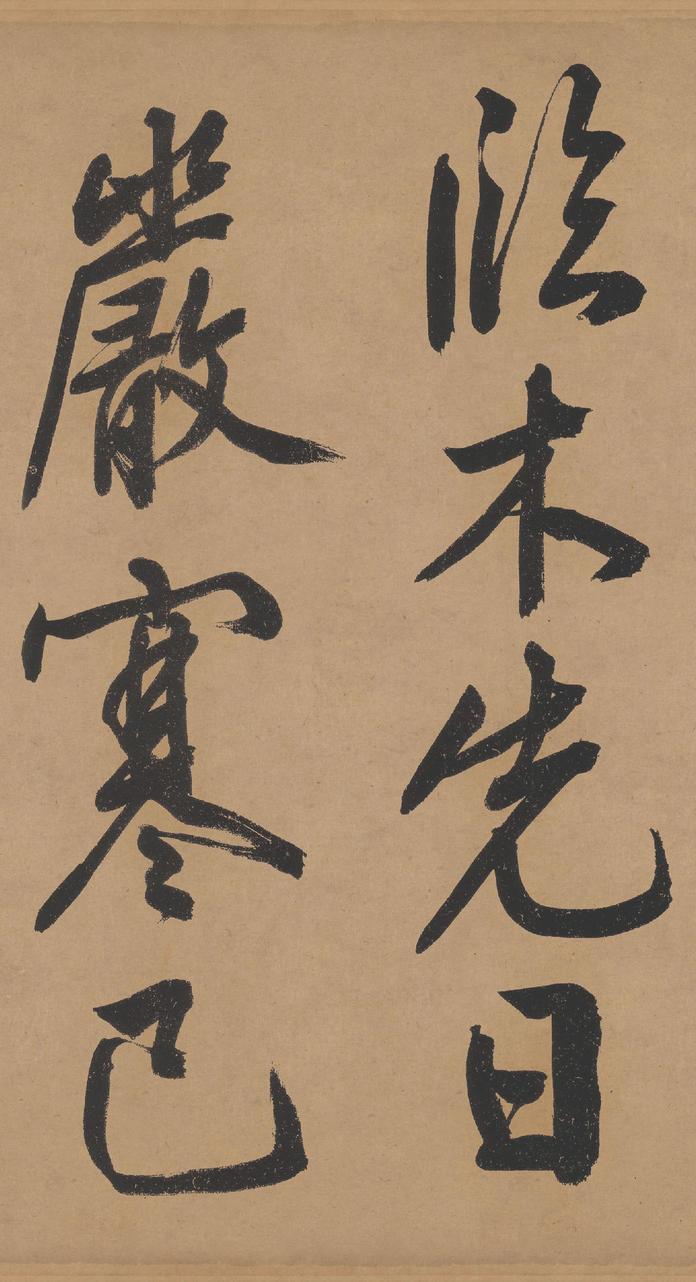 臨木先日
嚴寒已